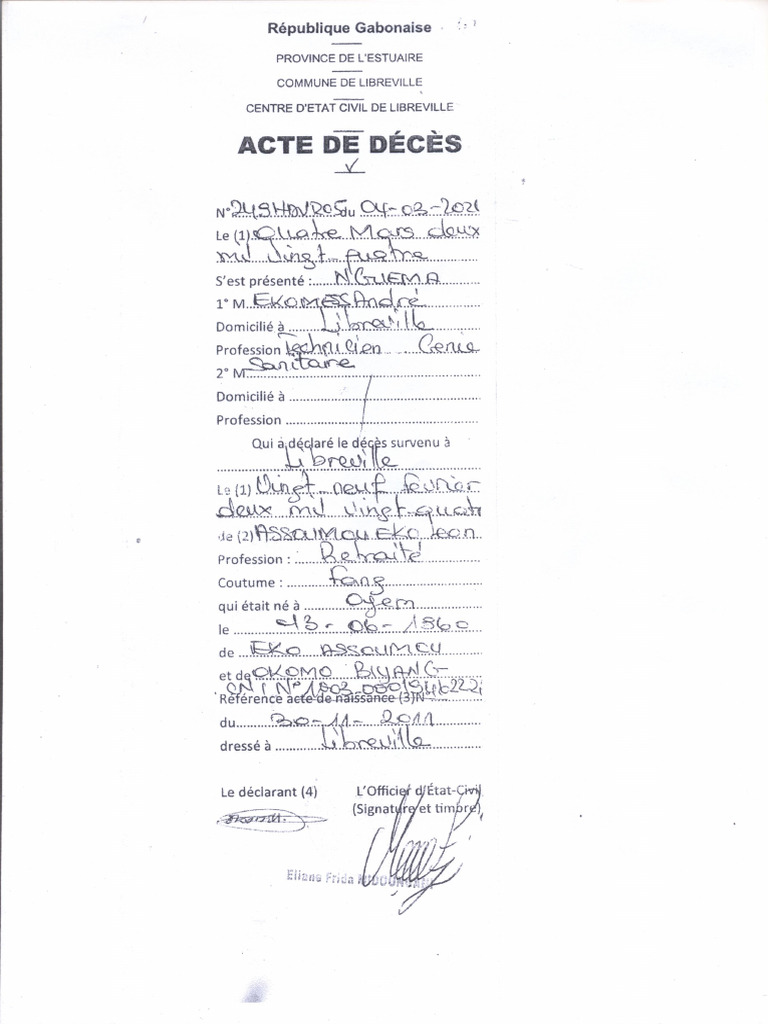 République Gabonaise
PROVINCE DE L'ESTUAIRE
COMMUNE DE LIBREVILLE
CENTRE D'ETAT CIVIL DE LIBREVILLE
ACTE DE DÉCÈS
N° du 04-03-202
Le (1) Quatre Mars deux
mil vingt quatre
S'est présenté : NGUEMA
1° M EKOMESS André
Domicilié à Libreville
Profession Technicien Genie
2° M Sanitaire
Domicilié à
Profession
Qui a déclaré le décès survenu à
Libreville
Le (1) Vingt neuf fevrier
deux mil vingt quatr
de (2) ASSOUMOU EKO Leon
Profession : Retraité
Coutume : Fang
qui était né à Oyem
le 13-06-1960
de EKO ASSOUMOU
et de OKOMO BIYANG
CNI N°
Référence acte de naissance (3)N°
du 30-11-2011
dressé à Libreville
Le déclarant (4) L'Officier d'État-Civil
(Signature et timbre)
Eliane Frida